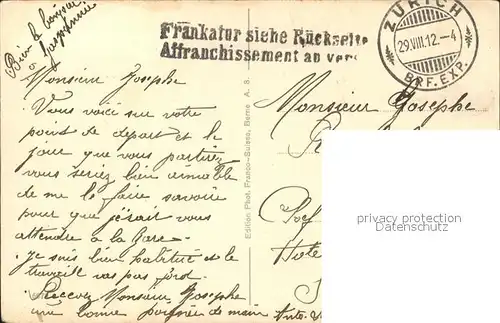 Bien le bonjour
à Joséphine
Frankatur siehe Rückseite
Affranchissement au verso
ZÜRICH
29.VIII.12.-4
BRF. EXP.
Monsieur Josephe
Vous voici sur votre
point de depart et le
jour que vous partirez
vous seriez bien aimable
de me le faire savoire
pour que j'irait vous
attendre à la Gare.
Je suis bien habitué et le
travaille vas pas fort.
Recevez Monsieur Josephe
une bonne poignée de main
Edition Phot. Franco-Suisse, Berne A. S.
Monsieur Josephe
privacy protection
Datenschutz